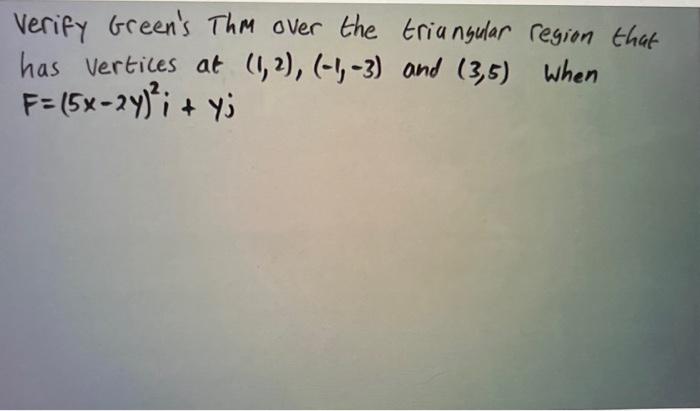 Verify Green's Thm over the triangular region that
has vertices at (1,2), (-1,-3) and (3,5) when
F=(5x-2y)²i + yj